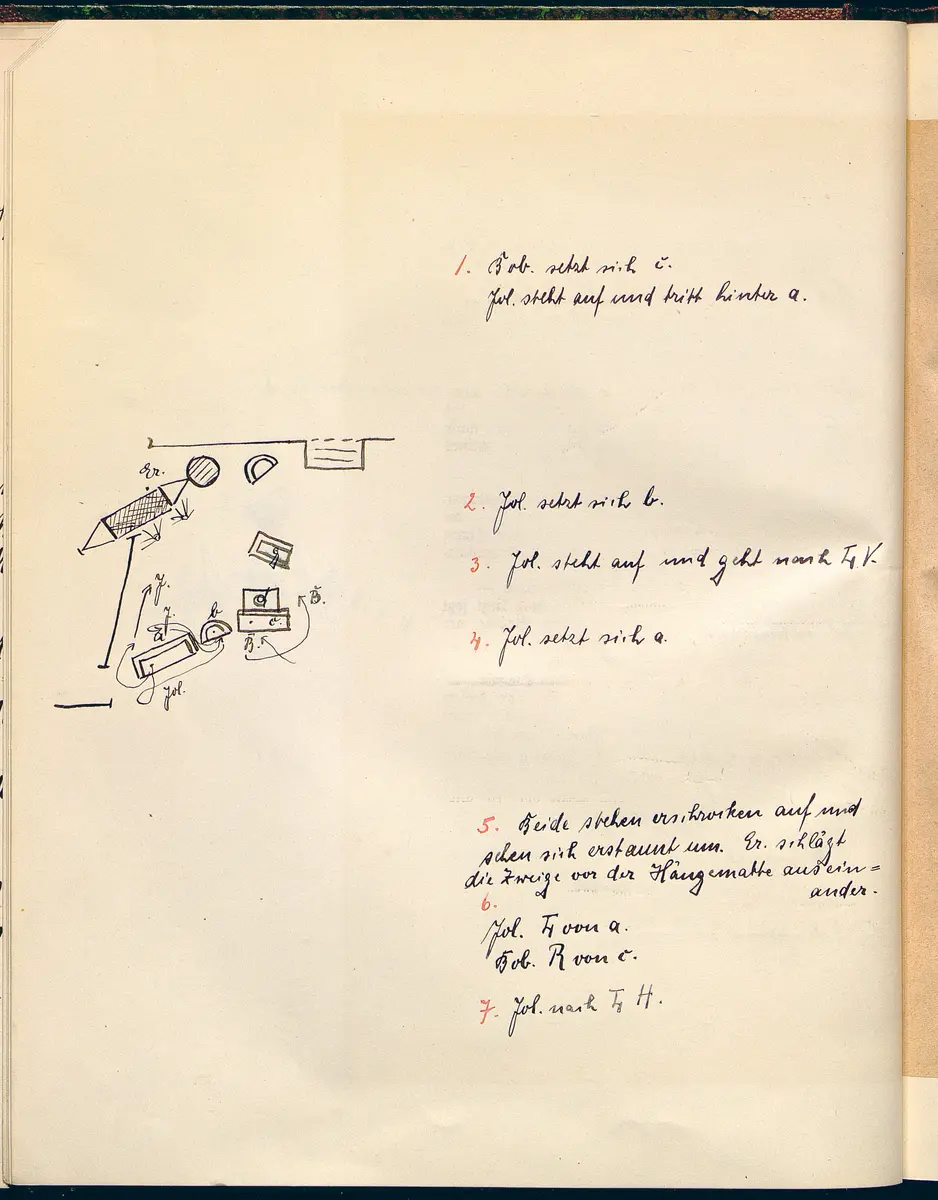 1. Bob. setzt sich c.
Jol. steht auf und tritt hinter a.
Er.
2. Jol. setzt sich b.
3. Jol. steht auf und geht nach L V.
g
J.
d
B.
J.
b
a
c.
B.
4. Jol. setzt sich a.
Jol.
5. Beide stehen erschrocken auf und
sehen sich erstaunt um. Er. schlägt
die Zweige vor der Hängematte ausein=
ander.
6.
Jol. L von a.
Bob. R von c.
7. Jol. nach L H.